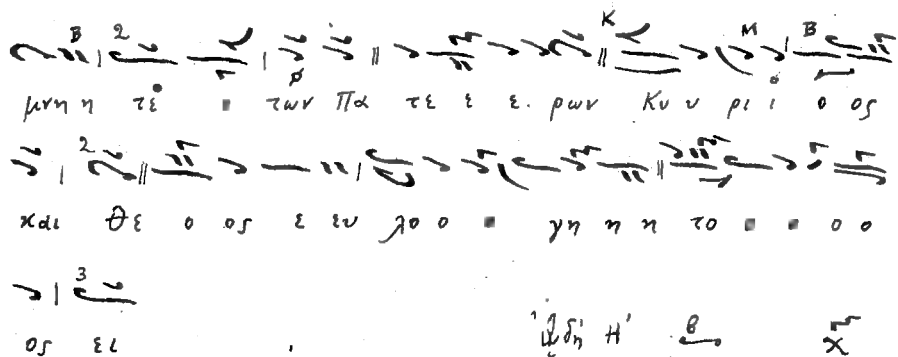 μνη η τε ▪ των Πα τε ε ε. ρων Κυ υ ρι ι ο ος
και Θε ο ος ε ευ λο ο ▪ γη η η το ▪ ▪ ο ο
ος ει . ᾨδὴ Η'